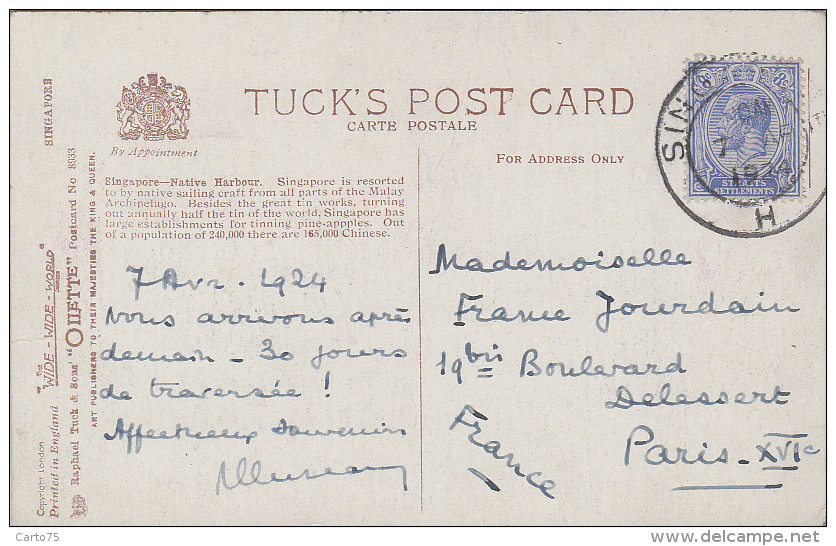 TUCK'S POST CARD
CARTE POSTALE
By Appointment
FOR ADDRESS ONLY
Singapore—Native Harbour. Singapore is resorted
to by native sailing craft from all parts of the Malay
Archipelago. Besides the great tin works, turning
out annually half the tin of the world, Singapore has
large establishments for tinning pine-appples. Out
of a population of 240,000 there are 165,000 Chinese.
7 Avr. 1924
Nous arrivons après
demain - 30 jours
de traversée !
Affectueux souvenir
Mademoiselle
France Jourdain
19bis Boulevard
Delessert
Paris - XVIe
France
8c 8c
STRAITS
SETTLEMENTS
SIN
H
SINGAPORE
"The WIDE-WIDE-WORLD" Series
Raphael Tuck & Sons' "OILETTE" Postcard No 8933
ART PUBLISHERS TO THEIR MAJESTIES THE KING & QUEEN.
Copyright London
Printed in England
Carto75
http://www.delcampe.net